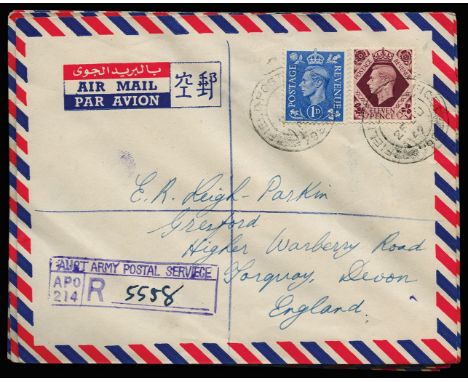 بالبريد الجوى
AIR MAIL
PAR AVION
空郵
POSTAGE REVENUE
1D
POSTAGE REVENUE
ELEVEN PENCE
FIELD POST OFFICE
E. R. Leigh-Parkin
Gresford
Higher Warberry Road
Torquay, Devon
England.
ARMY POSTAL SERVICE
APO
214
R
5558